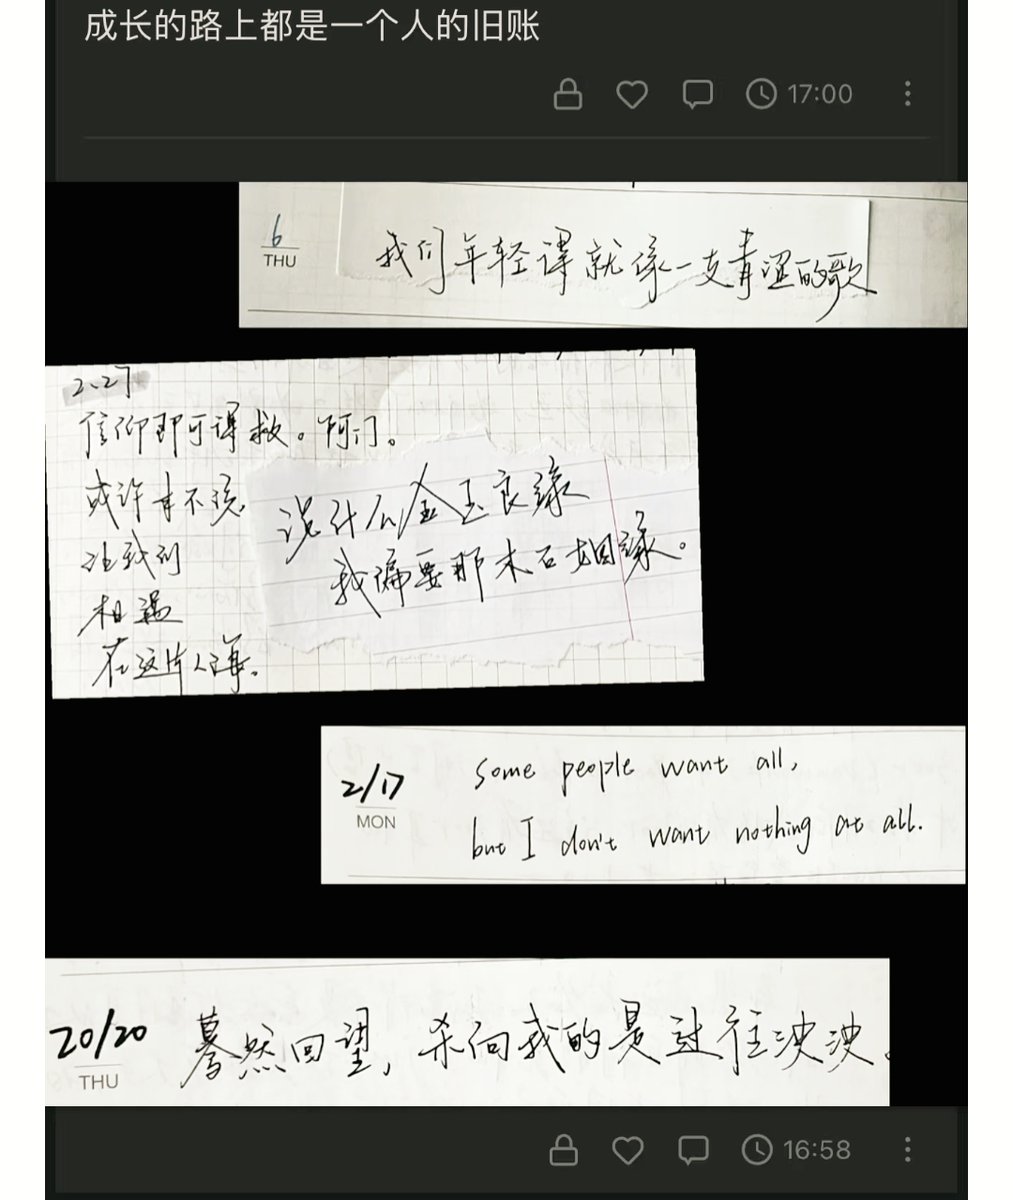 成长的路上都是一个人的旧账
17:00
6
THU
我们年轻得就像一支青涩的歌
2.27
信仰即可得救。阿门。
或许有不该
注我们
相遇
在这片人海。
说什么金玉良缘
我偏要那木石姻缘。
2/17
MON
some people want all,
but I don't want nothing at all.
20/20
THU
蓦然回望，杀向我的是过往泱泱。
16:58